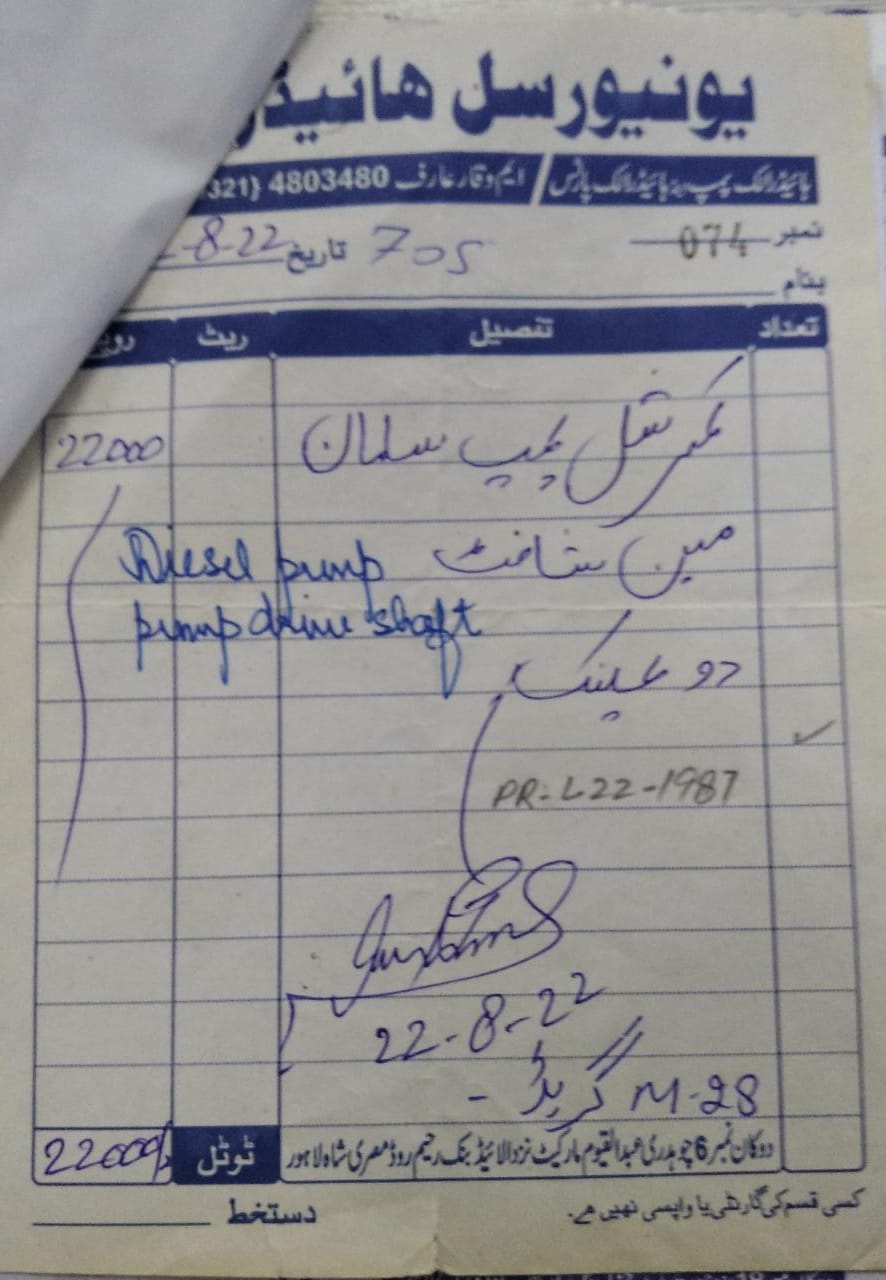 یونیورسل ھائیڈر
ہائیڈرالک پمپ اینڈ ہائیڈرالک پارٹس / ایم وقار عارف 4803480 {321
نمبر 074 705 تاریخ -8-22
بنام
تعداد تفصیل ریٹ روپے
پمپ سلمان 22000
مین شافٹ Diesel pump
pump drive shaft
دو
PR-L22-1987
22-8-22
M-28 گریڈر -
دوکان نمبر 6 چوہدری عبدالقیوم مارکیٹ نزد الائیڈ بنک رحیم روڈ مصری شاہ لاہور ٹوٹل 22000/
کسی قسم کی گارنٹی یا واپسی نہیں ہے۔
دستخط